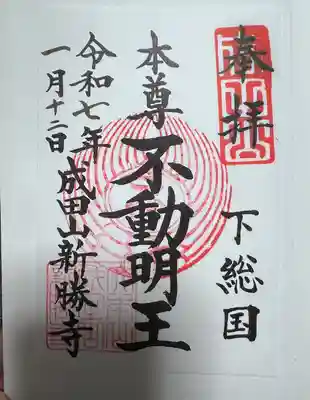 奉拝
下総国
本尊 不動明王
成田山新勝寺
令和七年
一月十二日